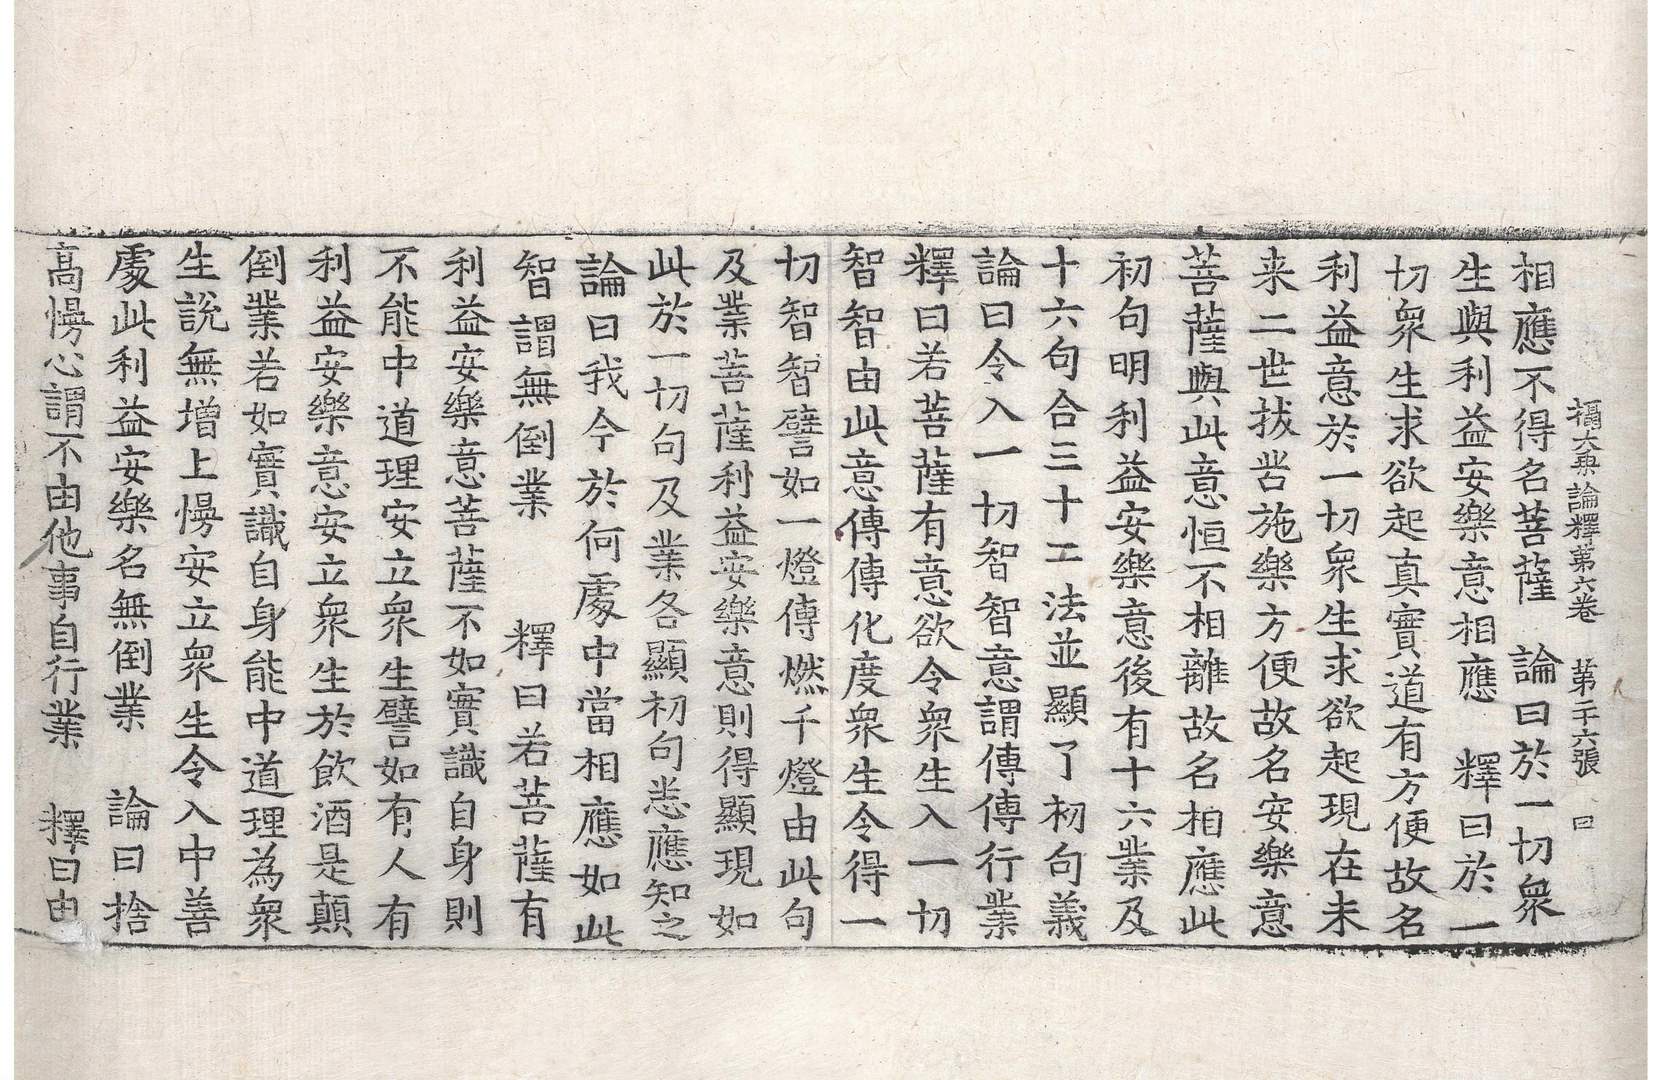 攝大乗論釋第六卷　第二十六張　曰
相應不得名菩薩　論曰於一切衆
生與利益安樂意相應　釋曰於一
切衆生求欲起真實道有方便故名
利益意於一切衆生求欲起現在未
来二世拔苦施樂方便故名安樂意
菩薩與此意恒不相離故名相應此
初句明利益安樂意後有十六業及
十六句合三十二法並顯了初句義
論曰令入一切智智意謂傳傳行業
釋曰若菩薩有意欲令衆生入一切
智智由此意傳傳化度衆生令得一
切智智譬如一燈傳燃千燈由此句
及業菩薩利益安樂意則得顯現如
此於一切句及業各顯初句悉應知之
論曰我今於何處中當相應如此
智謂無倒業　釋曰若菩薩有
利益安樂意菩薩不如實識自身則
不能中道理安立衆生譬如有人有
利益安樂意安立衆生於飲酒是顛
倒業若如實識自身能中道理為衆
生說無增上慢安立衆生令入中善
處此利益安樂名無倒業　論曰捨
高慢心謂不由他事自行業　釋曰由